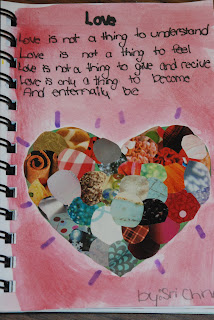 Love
Love is not a thing to understand
Love is not a thing to feel
Love is not a thing to give and recive
Love is only a thing to become
And enternally be
by: Sri Chin